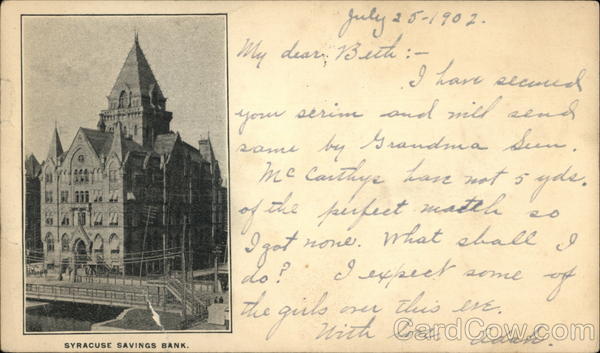 July 25-1902.
My dear Beth:-
I have secured
your scrim and will send
same by Grandma
McCarthys have not 5 yds.
of the perfect match so
I got none. What shall I
do? I expect some of
the girls over this eve.
With love
SYRACUSE SAVINGS BANK.
CardCow.com